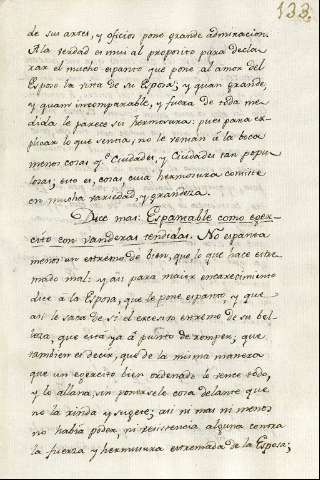 133.
de sus artes, y oficios pone grande admiracion.
A la verdad es mui al proposito para decla-
rar el mucho espanto que pone al amor del
Esposo la vista de su Esposa; y quan grande,
y quan incomparable, y fuera de toda me-
dida le parece su hermosura: pues para ex-
plicar lo que sentia, no le venian á la boca
menos cosas q.e Ciudades, y Ciudades tan popu-
losas, esto es, cosas cuia hermosura consiste
en mucha variedad, y grandeza.
Dice mas: Espantable como exer-
cito con vanderas tendidas. No espanta
menos un extremo de bien, que lo que hace estre-
mado mal: y asi para maior encarecimiento
dice a la Esposa, que le pone espanto, y que
asi le saca de sí el excesivo extremo de su bel-
leza; que está ya á punto de romper; que
tambien es decir, que de la misma manera
que un exercito bien ordenado lo vence todo,
y lo allana, sin ponersele cosa delante que
no la rinda y sugete; asi ni mas ni menos
no habia poder, ni resistencia alguna contra
la fuerza y hermosura estremada de la Esposa;